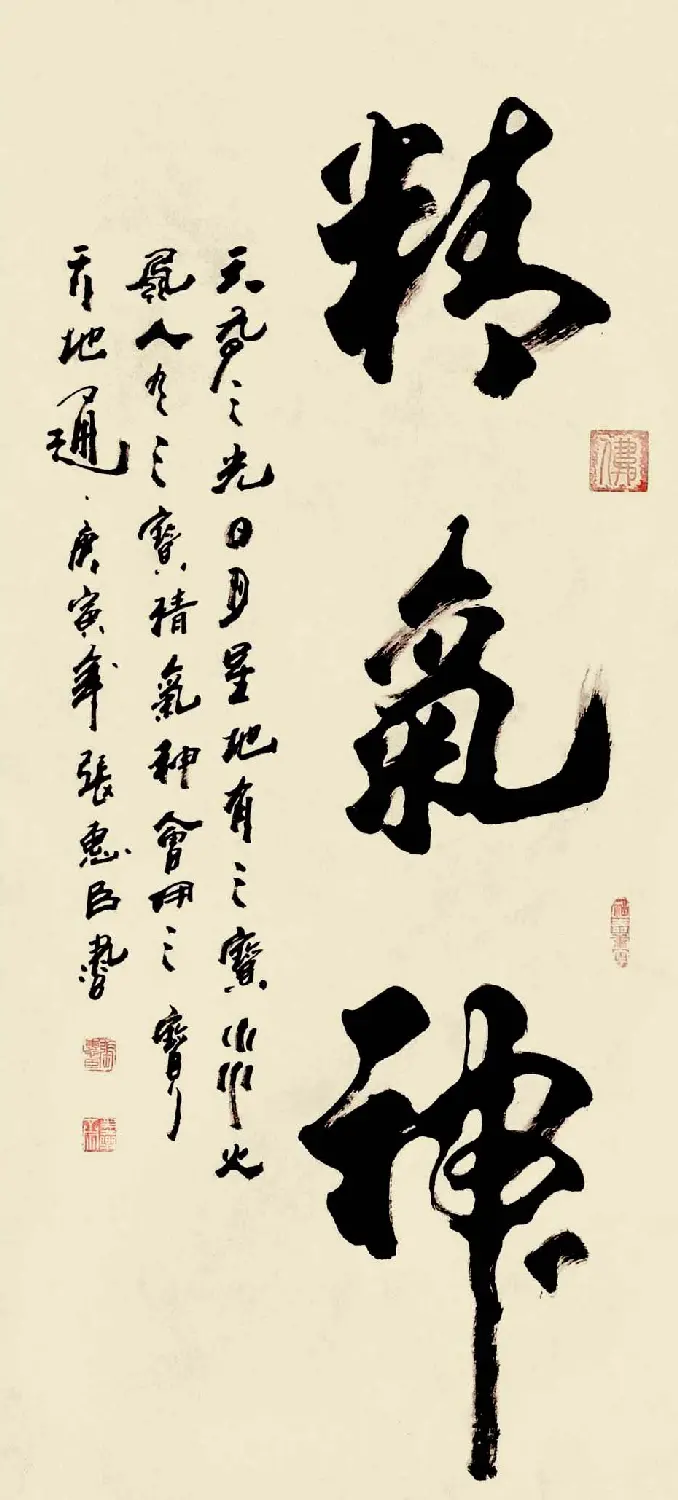 精氣神
佛
天有三光日月星地有三寶水火
風人有三寶精氣神會用三寶
天地通庚寅年張惠臣書